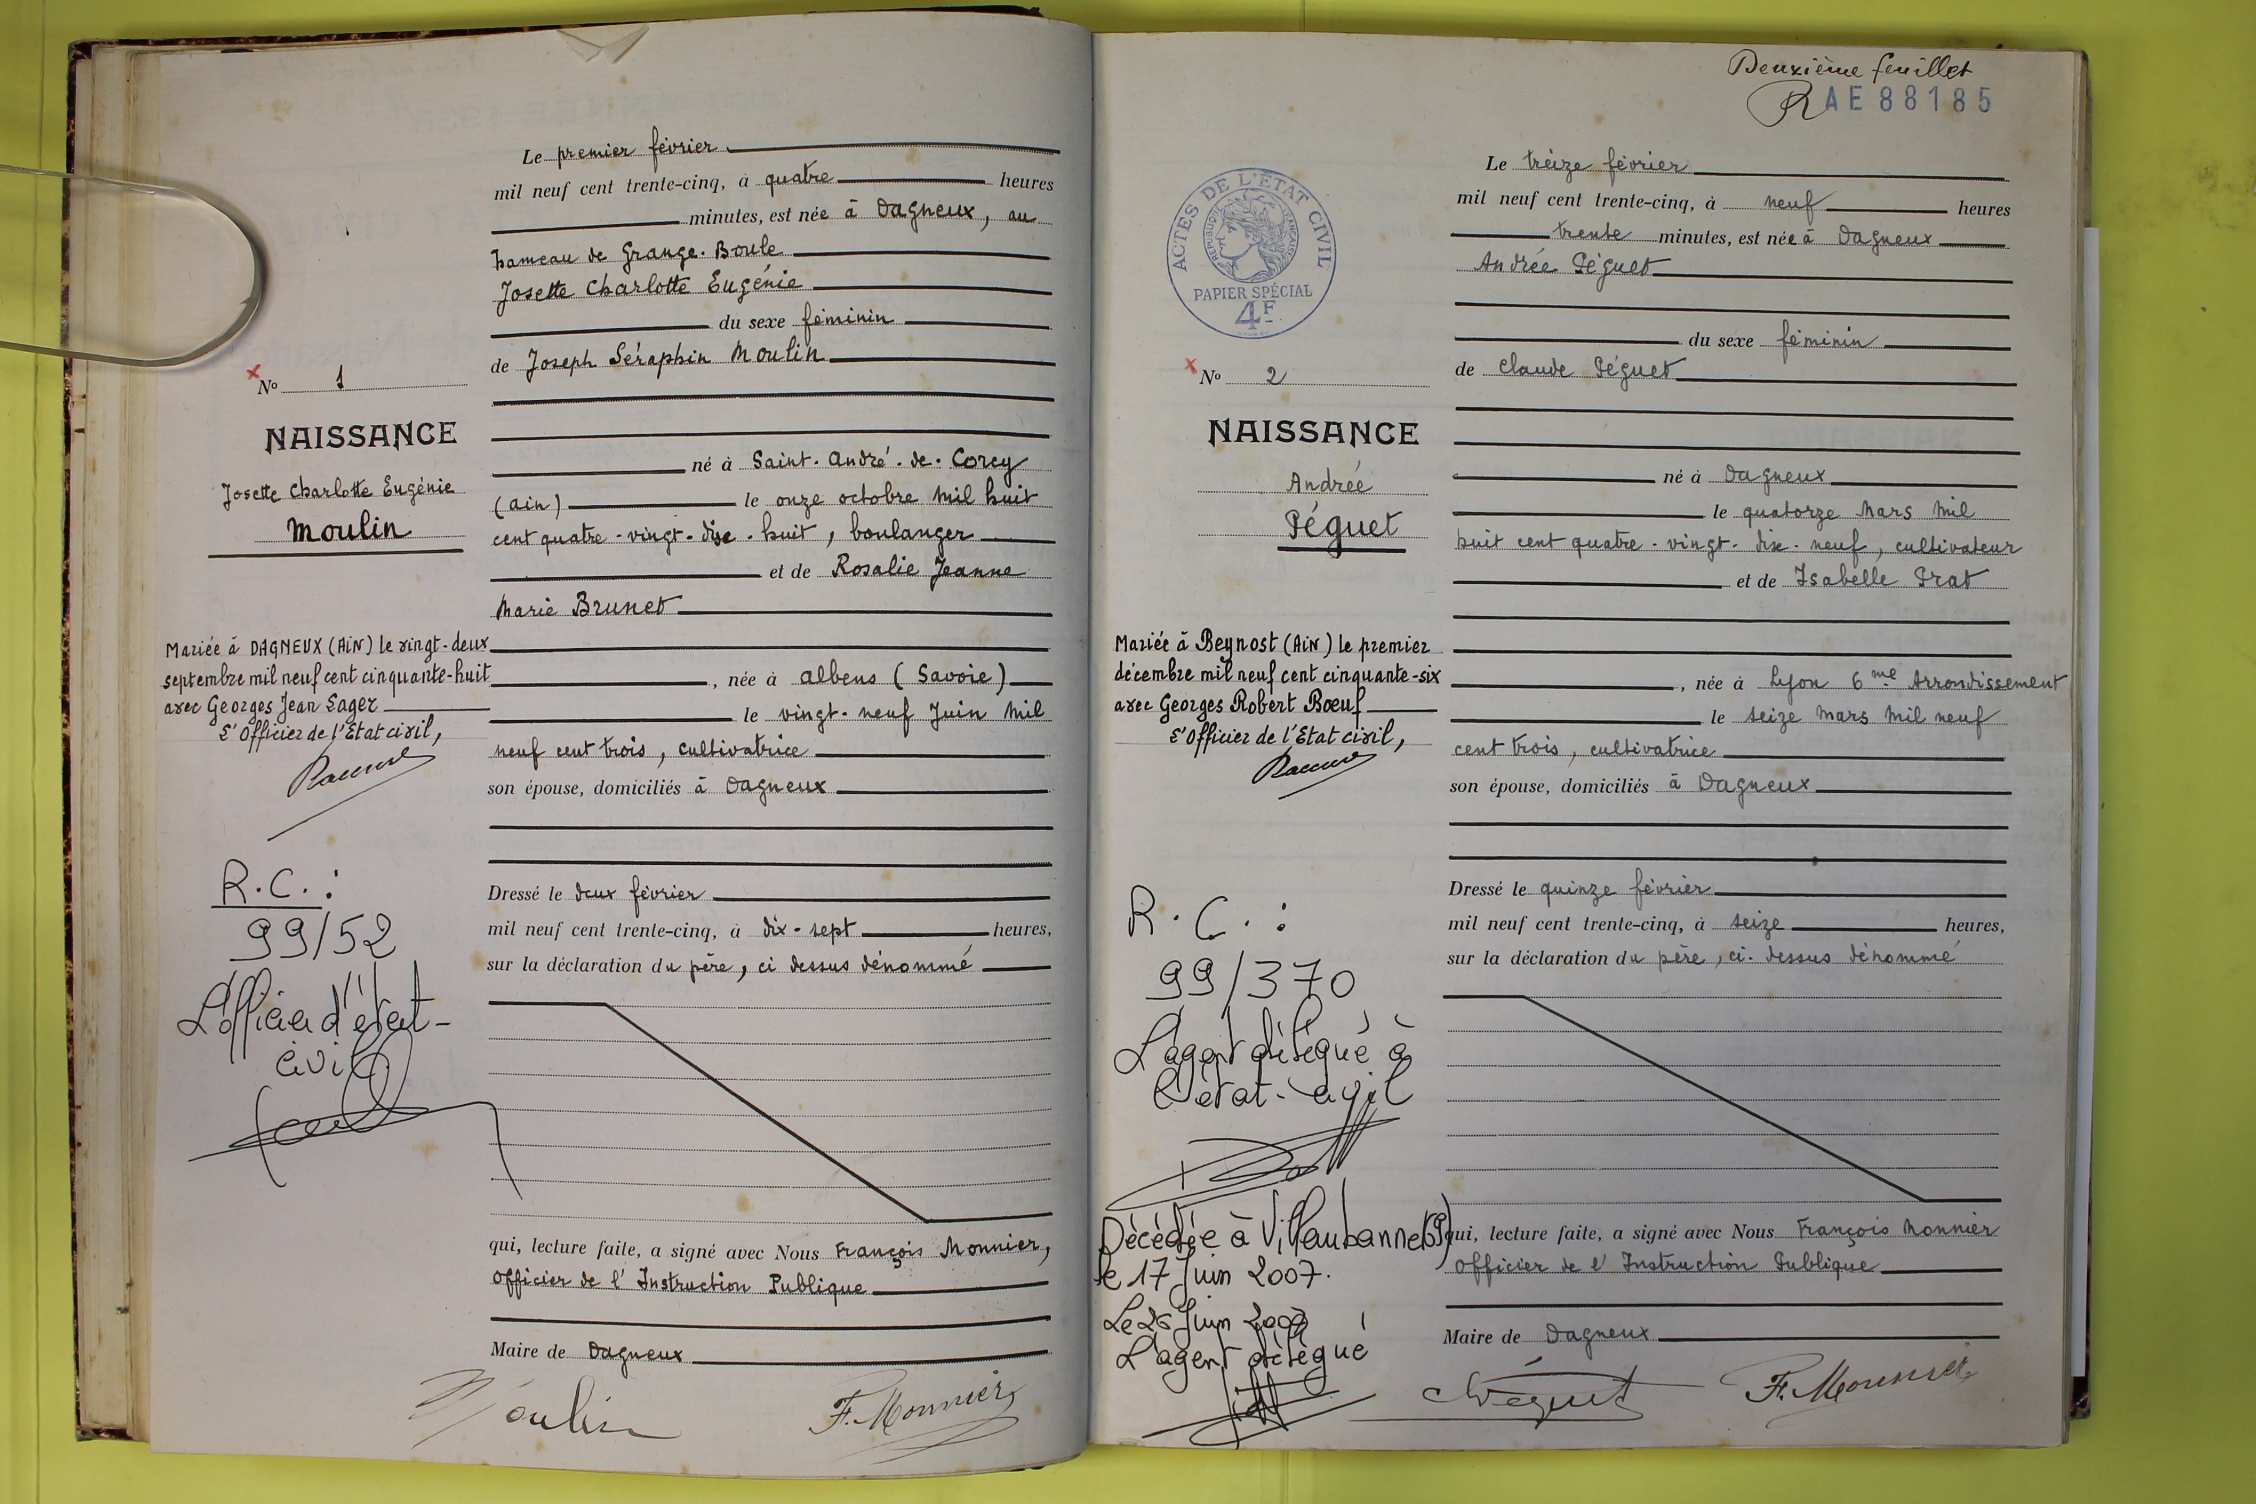 Le premier février
mil neuf cent trente-cinq, à quatre heures
minutes, est née à Dagneux, au
hameau de Grange-Boule
Josette Charlotte Eugénie
du sexe féminin
de Joseph Séraphin Moulin
né à Saint-André-de-Corcy
(Ain) le onze octobre mil huit
cent quatre-vingt-dix-huit, boulanger
et de Rosalie Jeanne
Marie Brunet
, née à Albens (Savoie)
le vingt-neuf Juin mil
neuf cent trois, cultivatrice
son épouse, domiciliés à Dagneux
Dressé le deux février
mil neuf cent trente-cinq, à dix-sept heures,
sur la déclaration du père, ci dessus dénommé
qui, lecture faite, a signé avec Nous François Monnier,
Officier de l'Instruction Publique
Maire de Dagneux
Moulin F. Monnier
No 1
NAISSANCE
Josette Charlotte Eugénie
Moulin
Mariée à DAGNEUX (AIN) le vingt-deux
septembre mil neuf cent cinquante-huit
avec Georges Jean Sager
L'Officier de l'Etat civil,
R.C.:
99/52
L'officier d'état-
civil
Deuxième feuillet
AE88185
ACTES DE L'ÉTAT CIVIL
RÉPUBLIQUE FRANÇAISE
PAPIER SPÉCIAL
4F
No 2
NAISSANCE
Andrée
Péguet
Mariée à Beynost (AIN) le premier
décembre mil neuf cent cinquante-six
avec Georges Robert Bœuf
L'Officier de l'Etat civil,
R.C.:
99/370
L'agent délégué à
l'état-civil
Décédée à Villeurbanne (69)
le 17 Juin 2007.
Le 26 Juin 2007
L'agent délégué
Le treize février
mil neuf cent trente-cinq, à neuf heures
trente minutes, est née à Dagneux
Andrée Péguet
du sexe féminin
de Claude Péguet
né à Dagneux
le quatorze Mars mil
huit cent quatre-vingt-dix-neuf, cultivateur
et de Isabelle Prat
, née à Lyon 6me Arrondissement
le seize Mars mil neuf
cent trois, cultivatrice
son épouse, domiciliés à Dagneux
Dressé le quinze février
mil neuf cent trente-cinq, à seize heures,
sur la déclaration du père, ci-dessus dénommé
qui, lecture faite, a signé avec Nous François Monnier
Officier de l'Instruction Publique
Maire de Dagneux
Péguet F. Monnier